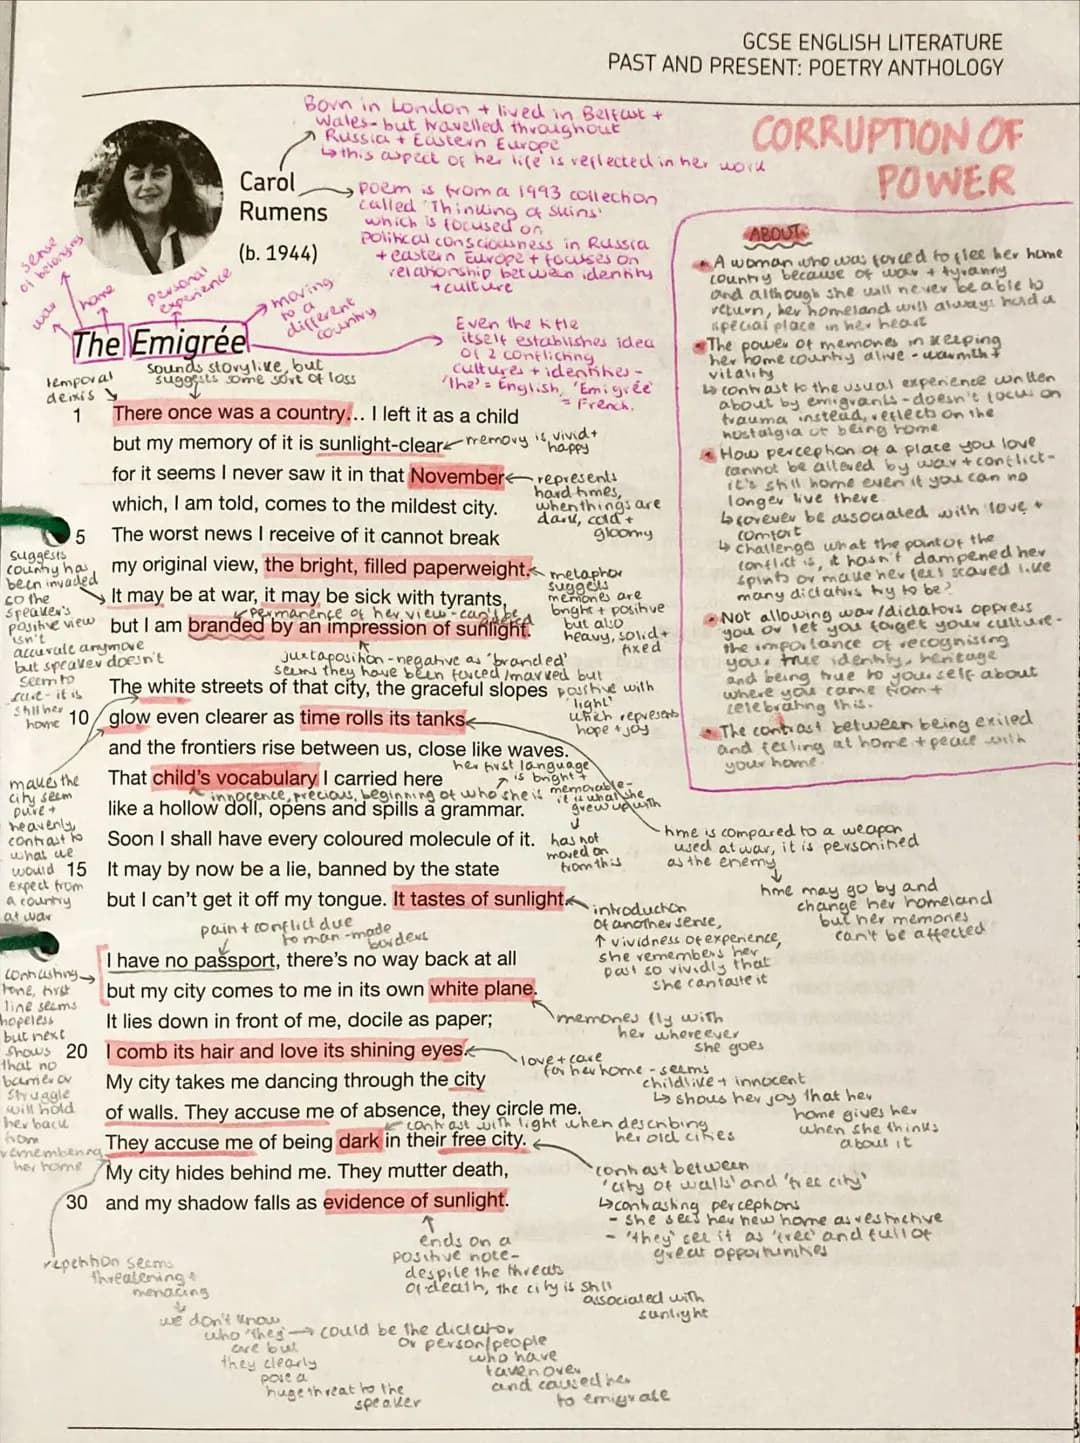 GCSE ENGLISH LITERATURE
PAST AND PRESENT: POETRY ANTHOLOGY
Born in London + lived in Belfast +
Wales - but travelled throughout
Russia + Eastern Europe
↳ this aspect of her life is reflected in her work
CORRUPTION OF
POWER
Carol
Rumens
(b. 1944)
poem is from a 1993 collection
called 'Thinking of Skins'
which is focused on
political consciousness in Russia
+ eastern Europe + focuses on
relationship between identity
+ culture
sense
of belonging
war
home
personal
experience
moving
to a
different
country
The Emigrée
Even the title
itself establishes idea
of 2 conflicting
cultures + identities -
'The' = English, 'Emigrée'
= French.
ABOUT
• A woman who was forced to flee her home
country because of war + tyranny
and although she will never be able to
return, her homeland will always hold a
special place in her heart
• The power of memories in keeping
her home country alive - warmth +
vitality
↳ contrast to the usual experience written
about by emigrants - doesn't focus on
trauma instead, reflects on the
nostalgia of being home
• How perception of a place you love
cannot be altered by war + conflict -
it's still home even if you can no
longer live there
↳ forever be associated with love +
comfort
↳ challenges what the point of the
conflict is, it hasn't dampened her
spirits or make her feel scared like
many dictators try to be?
• Not allowing war/dictators oppress
you or let you forget your culture -
the importance of recognising
your true identity, heritage
and being true to yourself about
where you came from +
celebrating this.
• The contrast between being exiled
and feeling at home + peace with
your home.
temporal
deixis
sounds storylike, but
suggests some sort of loss
1 There once was a country... I left it as a child
but my memory of it is sunlight-clear
memory is vivid +
happy
for it seems I never saw it in that November
which, I am told, comes to the mildest city.
represents
hard times,
when things are
dark, cold +
gloomy
5 The worst news I receive of it cannot break
my original view, the bright, filled paperweight.
It may be at war, it may be sick with tyrants,
permanence of her view - can't be
but I am branded by an impression of sunlight.
metaphor
suggests
memories are
bright + positive
but also
heavy, solid +
fixed
suggests
country has
been invaded
so the
speaker's
positive view
isn't
accurate anymore
but speaker doesn't
seem to
care - it is
still her
home
juxtaposition - negative as 'branded'
seems they have been forced/marked but
positive with
'light'
which represents
hope + joy
The white streets of that city, the graceful slopes
10 glow even clearer as time rolls its tanks
and the frontiers rise between us, close like waves.
her first language
is bright +
memorable -
it is what she
grew up with
↓
has not
moved on
from this
That child's vocabulary I carried here
innocence, precious, beginning of who she is
like a hollow doll, opens and spills a grammar.
Soon I shall have every coloured molecule of it.
15 It may by now be a lie, banned by the state
but I can't get it off my tongue. It tastes of sunlight.
makes the
city seem
pure +
heavenly,
contrast to
what we
would
expect from
a country
at war
time is compared to a weapon
used at war, it is personified
as the enemy
↓
time may go by and
change her homeland
but her memories
can't be affected
introduction
of another sense,
↑ vividness of experience,
she remembers her
past so vividly that
she can taste it
pain + conflict due
to man-made
borders
I have no passport, there's no way back at all
but my city comes to me in its own white plane.
It lies down in front of me, docile as paper;
20 I comb its hair and love its shining eyes.
My city takes me dancing through the city
of walls. They accuse me of absence, they circle me.
contrast with light when describing
her old cities
They accuse me of being dark in their free city.
My city hides behind me. They mutter death,
30 and my shadow falls as evidence of sunlight.
contrasting
tone, first
line seems
hopeless
but next
shows
that no
barrier or
struggle
will hold
her back
from
remembering
her home
memories fly with
her wherever
she goes
love + care
for her home - seems
childlike + innocent
↳ shows her joy that her
home gives her
when she thinks
about it
contrast between
'city of walls' and 'free city'
↳ contrasting perceptions
- she sees her new home as restrictive
- 'they' see it as 'free' and full of
great opportunities
ends on a
positive note -
despite the threats
of death, the city is still
associated with
sunlight
repetition seems
threatening +
menacing
↓
we don't know
who 'they'
are but
they clearly
pose a
huge threat to the
speaker
→ could be the dictator
or person/people
who have
taken over
and caused her
to emigrate